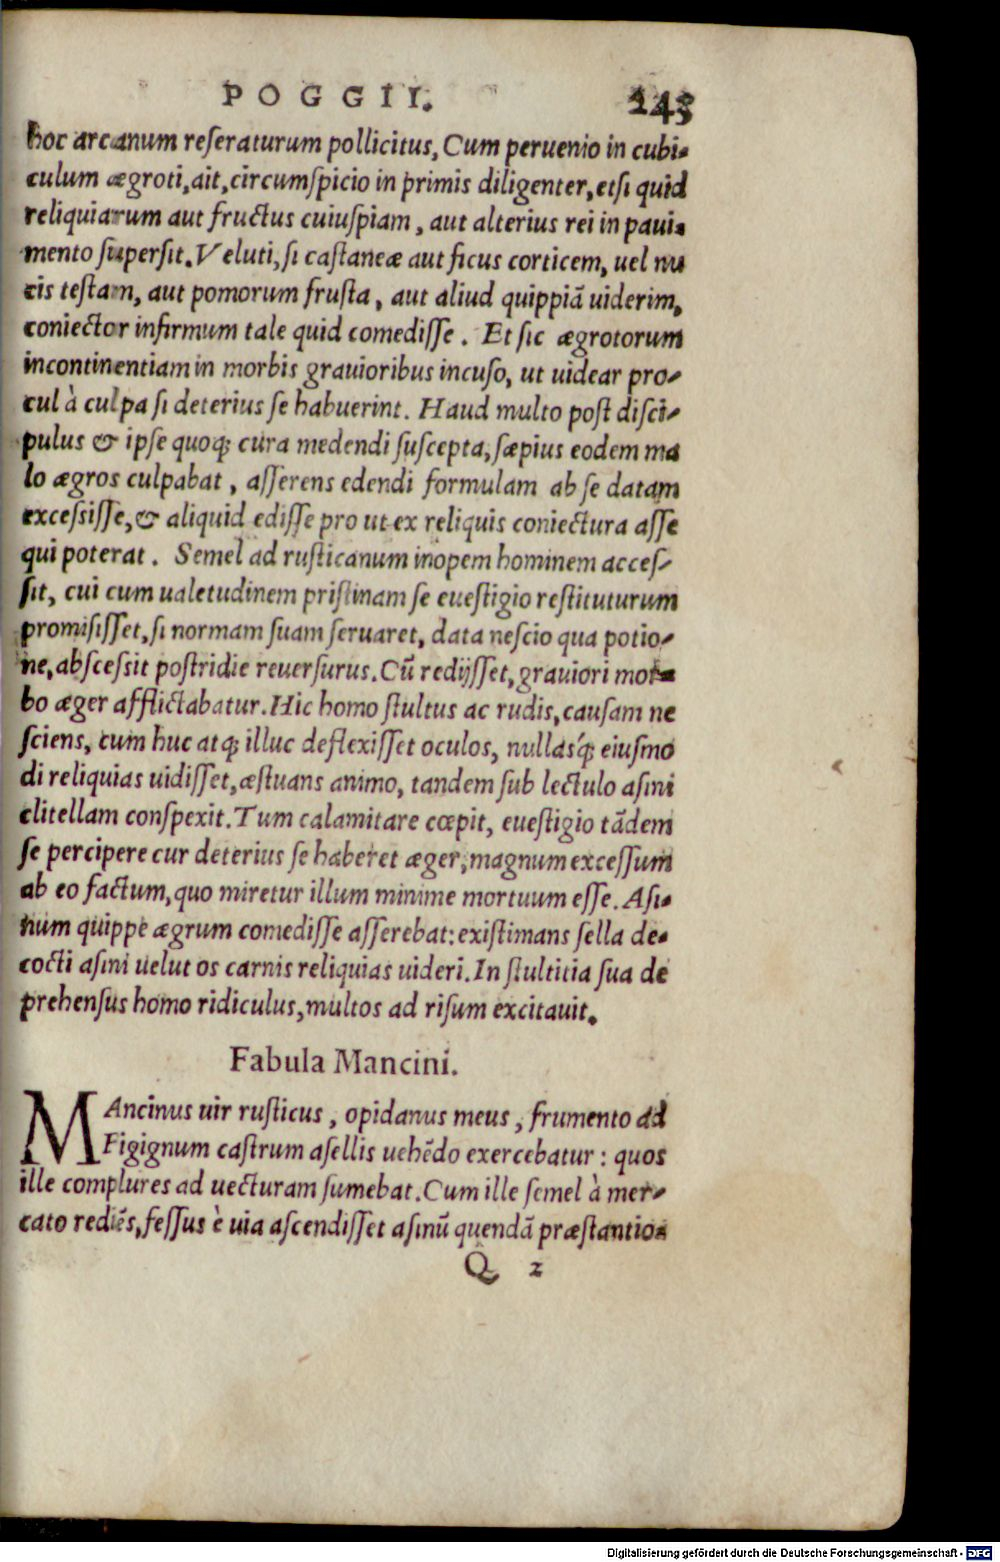 POGGII. 243
hoc arcanum reſeraturum pollicitus, Cum peruenio in cubi-
culum ægroti, ait, circumſpicio in primis diligenter, etſi quid
reliquiarum aut fructus cuiuſpiam, aut alterius rei in paui-
mento ſuperſit. Veluti, ſi caſtaneæ aut ficus corticem, uel nu
cis teſtam, aut pomorum fruſta, aut aliud quippiã uiderim,
coniector infirmum tale quid comediſſe. Et ſic ægrotorum
incontinentiam in morbis grauioribus incuſo, ut uidear pro-
cul à culpa ſi deterius ſe habuerint. Haud multo poſt diſci-
pulus & ipſe quoq; cura medendi ſuſcepta, ſæpius eodem ma
lo ægros culpabat, aſſerens edendi formulam ab ſe datam
exceſsiſſe, & aliquid ediſſe pro ut ex reliquis coniectura aſſe
qui poterat. Semel ad ruſticanum inopem hominem acceſ-
ſit, cui cum ualetudinem priſtinam ſe eueſtigio reſtituturum
promiſiſſet, ſi normam ſuam ſeruaret, data neſcio qua potio-
ne, abſceſsit poſtridie reuerſurus. Cũ redijſſet, grauiori mor-
bo æger afflictabatur. Hic homo ſtultus ac rudis, cauſam ne
ſciens, cum huc atq; illuc deflexiſſet oculos, nullasq́; eiuſmo
di reliquias uidiſſet, æſtuans animo, tandem ſub lectulo aſini
clitellam conſpexit. Tum calamitare cœpit, eueſtigio tãdem
ſe percipere cur deterius ſe haberet æger, magnum exceſſum
ab eo factum, quo miretur illum minime mortuum eſſe. Aſi-
num quippe ægrum comediſſe aſſerebat: exiſtimans ſella de-
cocti aſini uelut os carnis reliquias uideri. In ſtultitia ſua de
prehenſus homo ridiculus, multos ad riſum excitauit.
Fabula Mancini.
MAncinus uir ruſticus, opidanus meus, frumento ad
Figignum caſtrum aſellis uehẽdo exercebatur: quos
ille complures ad uecturam ſumebat. Cum ille ſemel à mer-
cato rediẽs, feſſus è uia aſcendiſſet aſinũ quendã præſtantio-
Q 2
Digitalisierung gefördert durch die Deutsche Forschungsgemeinschaft - DFG